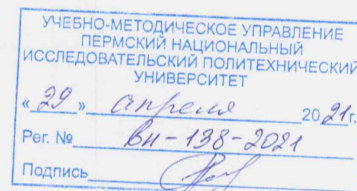 УЧЕБНО-МЕТОДИЧЕСКОЕ УПРАВЛЕНИЕ
ПЕРМСКИЙ НАЦИОНАЛЬНЫЙ
ИССЛЕДОВАТЕЛЬСКИЙ ПОЛИТЕХНИЧЕСКИЙ
УНИВЕРСИТЕТ
«29» апреля 2021г.
Рег. № вн-138-2021
Подпись